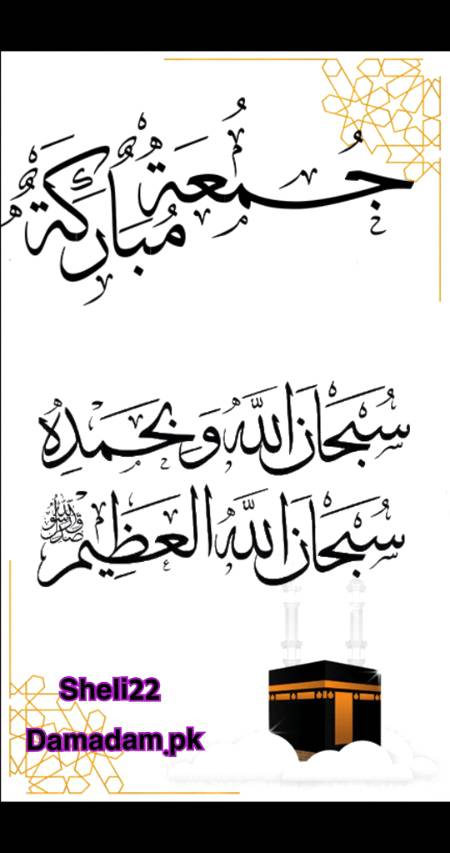 جُمُعَة
مُبَارَكَة
سُبْحَانَ اللَّهِ وَبِحَمْدِهِ
سُبْحَانَ اللَّهِ الْعَظِيمِ
Sheli22
Damadam.pk